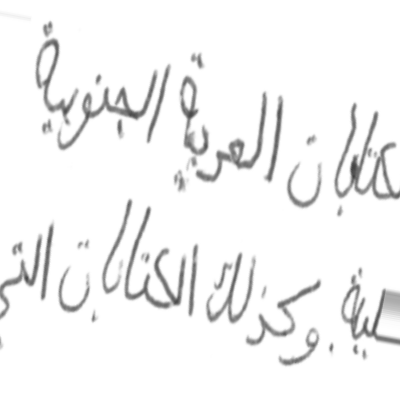 كتابات العربية الجنوبية
. وكذلك الكتابات التي